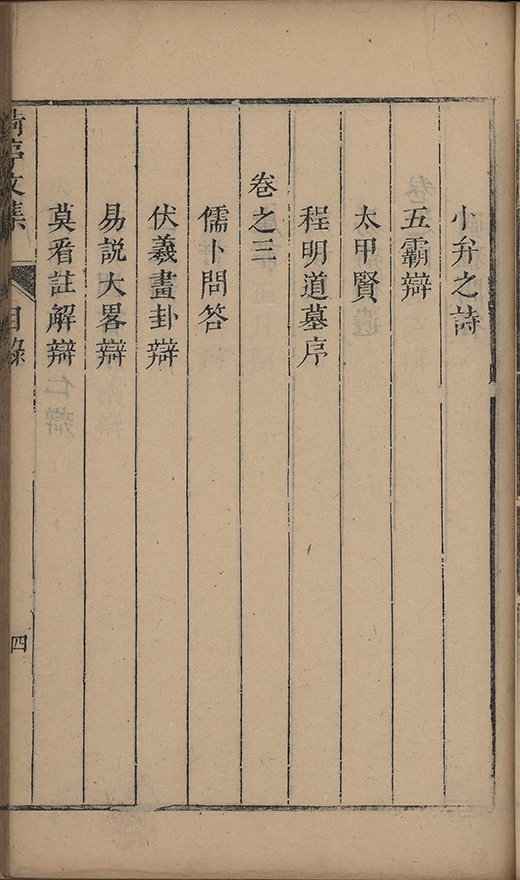 小弁之詩
五霸辯
太甲賢
程明道墓序
卷之三
儒卜問答
伏羲畫卦辯
易説大畧辯
莫看註解辯
亭文集 目錄 四